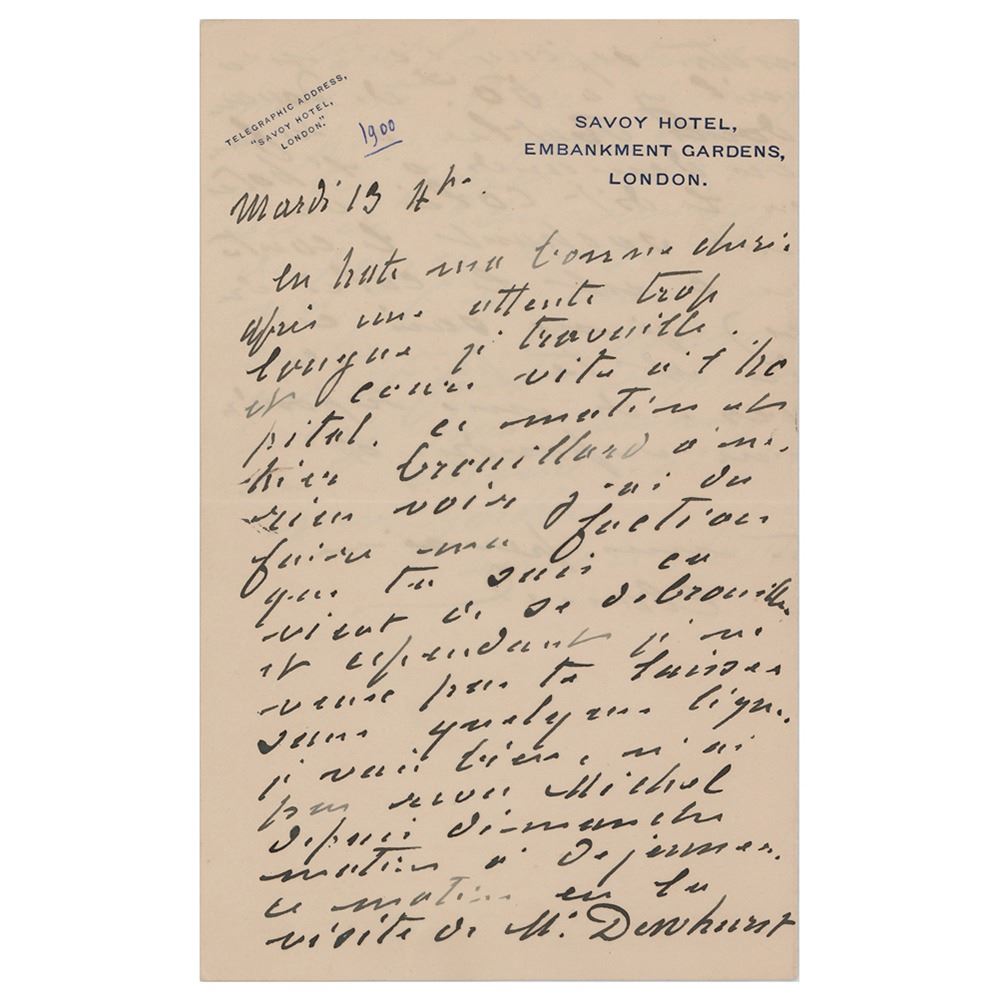 TELEGRAPHIC ADDRESS,
"SAVOY HOTEL,
LONDON."
1900
SAVOY HOTEL,
EMBANKMENT GARDENS,
LONDON.
Mardi 13 4h.
en hate ma bonne cherie
apres une attente trop
longue je travaille.
et cours vite a l'ho
pital. ce matin et
hier brouillard a ne
rien voir j'ai du
faire ma faction
que tu sais ca
vient de se debrouiller
et cependant je ne
veux pas te laisser
sans quelques lignes
je vais bien, n'ai
pas revu Michel
depuis dimanche
matin a dejeuner.
ce matin eu la
visite de Mr. Dewhurst